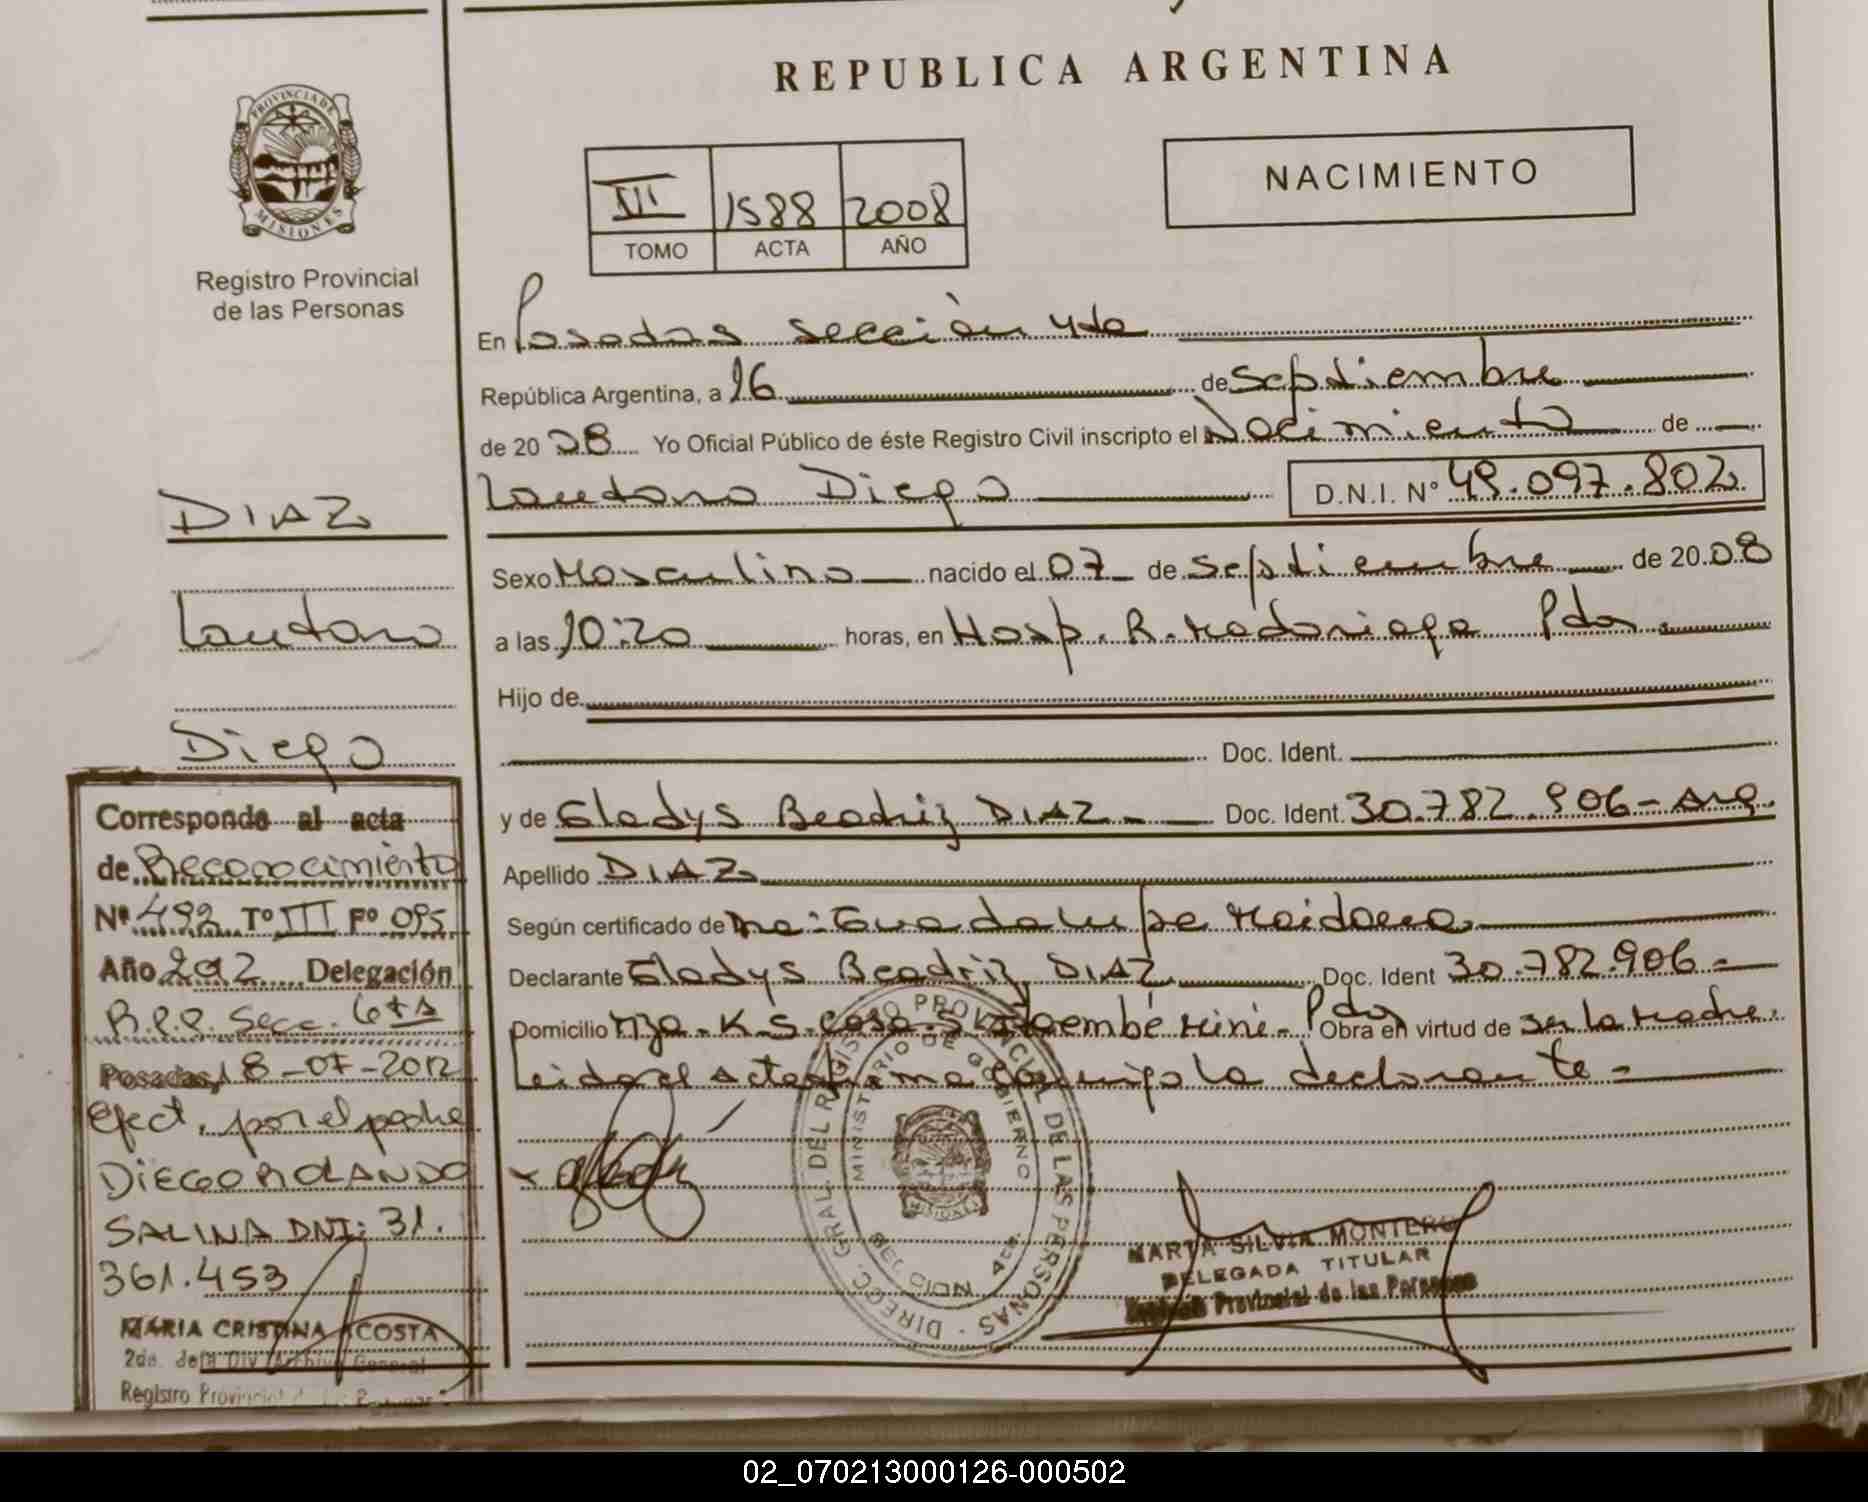 REPUBLICA ARGENTINA
PROVINCIA DE
MISIONES
Registro Provincial
de las Personas
III 1588 2008
TOMO ACTA AÑO
NACIMIENTO
En Posadas sección 4da
República Argentina, a 16 de septiembre
de 20 08 Yo Oficial Público de éste Registro Civil inscripto el Nacimiento de
Lautaro Diego D.N.I. Nº 49.097.802
Sexo Masculino nacido el 07 de septiembre de 20 08
a las 10:20 horas, en Hosp. R. Madariaga Pdas.
Hijo de
Doc. Ident.
y de Gladys Beatriz DIAZ Doc. Ident. 30.782.906 - Arg.
Apellido DIAZ
Según certificado de Dra: Guadalupe Maidana
Declarante Gladys Beatriz DIAZ Doc. Ident 30.782.906 -
Domicilio Mza. K. S. Casa Itaembé Miní - Pdas Obra en virtud de ser la Madre.
Leida el Acta firma conmigo la declarante -
DIAZ
Lautaro
Diego
Corresponde al acta
de Reconocimiento
Nº 492 Tº III Fº 095
Año 2012 Delegación
R.P.P. Secc. 6ta
Posadas, 18-07-2012
efect. por el padre
DIEGO ROLANDO
SALINA DNI: 31.
361.453
MARIA CRISTINA ACOSTA
2da. Jefa Div. Archivo General
Registro Provincial de las Personas
DIRECC. GRAL. DEL REGISTRO PROVINCIAL DE LAS PERSONAS
MINISTERIO DE GOBIERNO
MISIONES
MARTA SILVIA MONTERO
DELEGADA TITULAR
Registro Provincial de las Personas
02_070213000126-000502